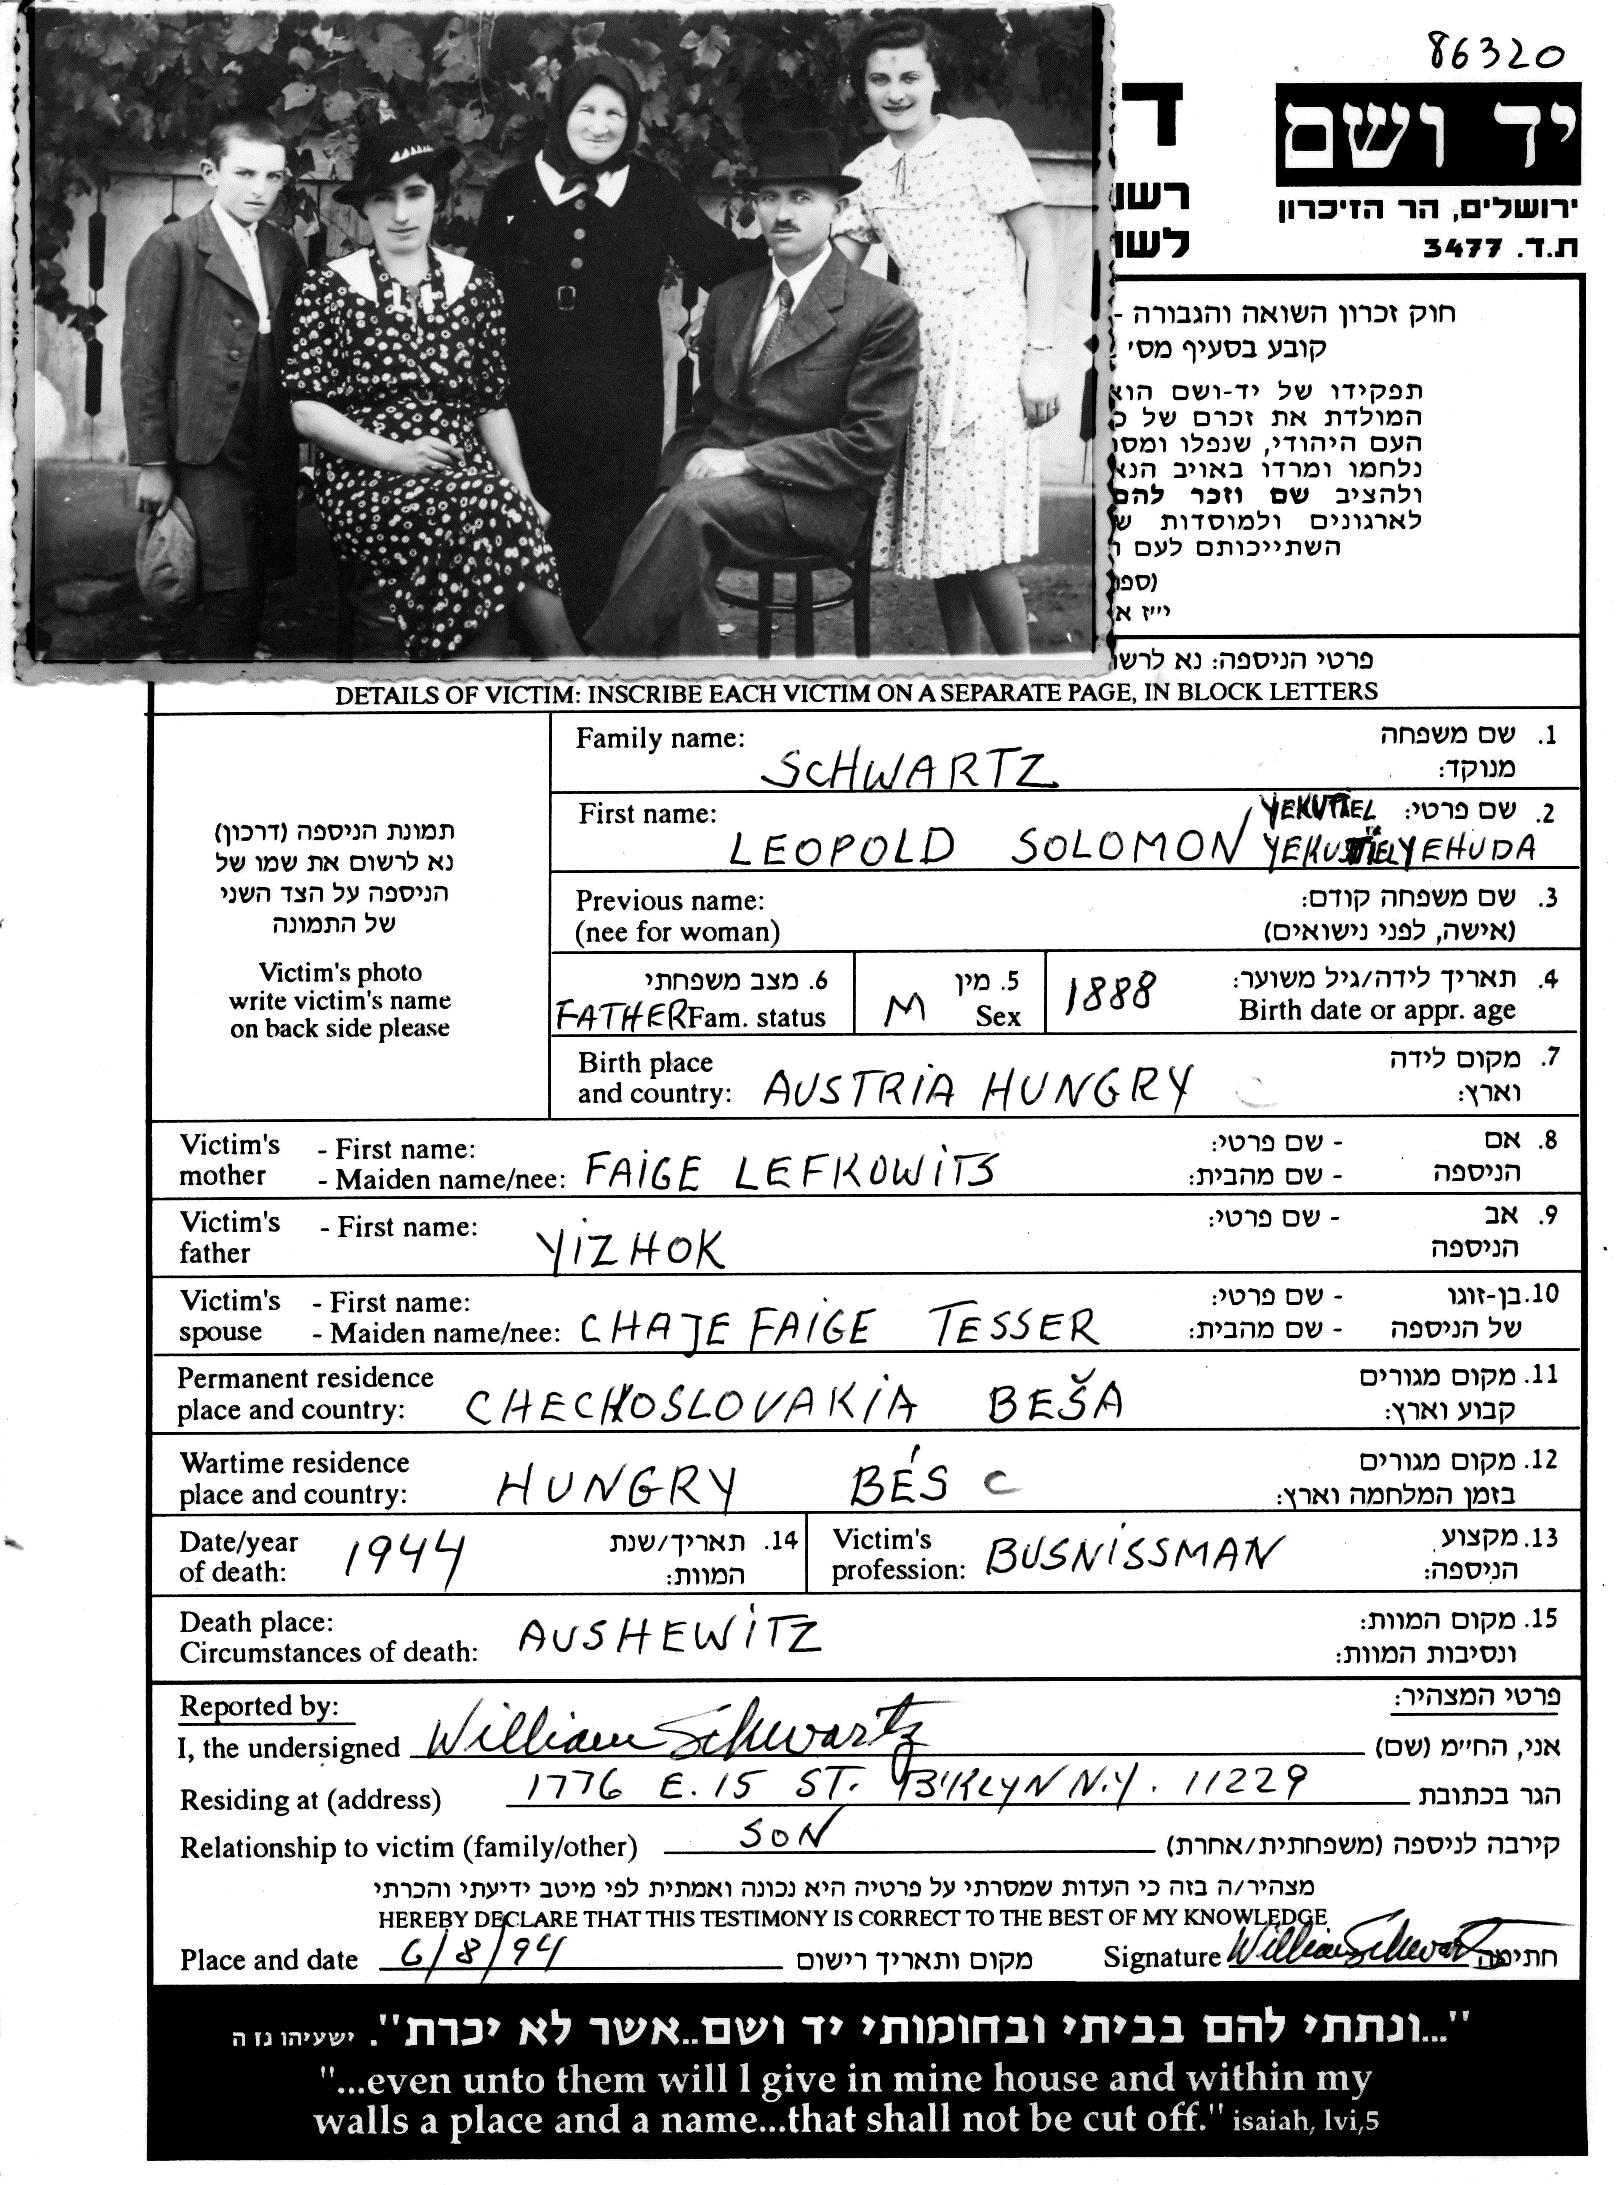 86320
יד ושם
ירושלים, הר הזיכרון
ת.ד. 3477
ד
רשו
לשו
חוק זכרון השואה והגבורה -
קובע בסעיף מס'
תפקידו של יד-ושם הוא
המולדת את זכרם של כ
העם היהודי, שנפלו ומסו
נלחמו ומרדו באויב הנא
ולהציב שם וזכר להם
לארגונים ולמוסדות ש
השתייכותם לעם
(ספו
י"ז א
פרטי הניספה: נא לרשו
DETAILS OF VICTIM: INSCRIBE EACH VICTIM ON A SEPARATE PAGE, IN BLOCK LETTERS
תמונת הניספה (דרכון)
נא לרשום את שמו של
הניספה על הצד השני
של התמונה
Victim's photo
write victim's name
on back side please
Family name: SCHWARTZ 1. שם משפחה
מנוקד:
First name: YEKUTIEL 2. שם פרטי:
LEOPOLD SOLOMON YEKUTIEL YEHUDA
Previous name: 3. שם משפחה קודם:
(nee for woman) (אישה, לפני נישואים)
6. מצב משפחתי 5. מין 1888 4. תאריך לידה/גיל משוער:
FATHER Fam. status M Sex Birth date or appr. age
Birth place 7. מקום לידה
and country: AUSTRIA HUNGRY וארץ:
Victim's - First name: - שם פרטי: 8. אם
mother - Maiden name/nee: FAIGE LEFKOWITS - שם מהבית: הניספה
Victim's - First name: - שם פרטי: 9. אב
father YIZHOK הניספה
Victim's - First name: - שם פרטי: 10. בן-זוגו
spouse - Maiden name/nee: CHAJE FAIGE TESSER - שם מהבית: של הניספה
Permanent residence 11. מקום מגורים
place and country: CHECHOSLOVAKIA BEŠA קבוע וארץ:
Wartime residence 12. מקום מגורים
place and country: HUNGRY BÉS C בזמן המלחמה וארץ:
Date/year 1944 14. תאריך/שנת Victim's 13. מקצוע
of death: המוות: profession: BUSNISSMAN הניספה:
Death place: 15. מקום המוות:
Circumstances of death: AUSHEWITZ ונסיבות המוות:
Reported by: פרטי המצהיר:
I, the undersigned William Schwartz אני, החי"מ (שם)
Residing at (address) 1776 E. 15 ST. B'KLYN N.Y. 11229 הגר בכתובת
Relationship to victim (family/other) SON קירבה לניספה (משפחתית/אחרת)
מצהיר/ה בזה כי העדות שמסרתי על פרטיה היא נכונה ואמתית לפי מיטב ידיעתי והכרתי
HEREBY DECLARE THAT THIS TESTIMONY IS CORRECT TO THE BEST OF MY KNOWLEDGE
Place and date 6/8/94 מקום ותאריך רישום Signature William Schwartz חתימה
"...ונתתי להם בביתי ובחומותי יד ושם..אשר לא יכרת". ישעיהו נז ה
"...even unto them will I give in mine house and within my
walls a place and a name...that shall not be cut off." isaiah, lvi,5